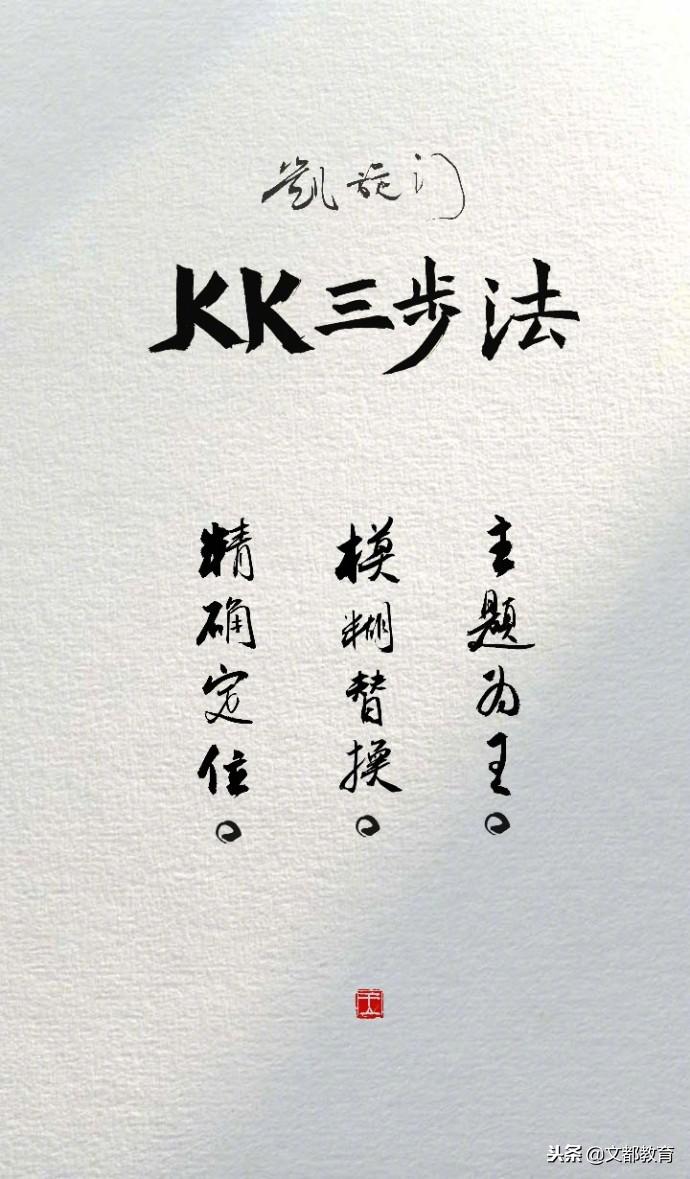 凯旋门
KK三步法
主题为王。
模糊替换。
精确定位。
头条 @文都教育